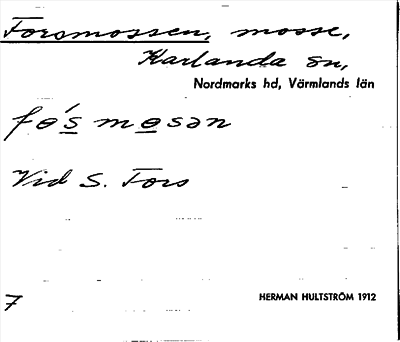 Forsmossen, mosse,
Karlanda sn,
Nordmarks hd, Värmlands län
fɵ´s mɵsən
Vid S. Fors
7
HERMAN HULTSTRÖM 1912